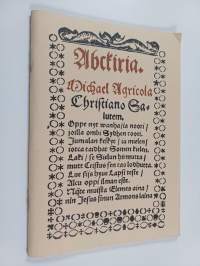 Abckiria.
Michael Agricola
Christiano Sa-
lutem.
Oppe nyt wanha/ia noori/
joilla ombi Sydhen toori.
Jumalan keskyt/ ia mielen/
iotca taidhat Somen kielen.
Laki/ se Sielun hirmutta/
mutt Cristus sen tas lodhutta.
Lue sijs hyue Lapsi teste/
Alcu oppi ilman este.
Nijte muista Elemes aina/
nin Jesus sinun Armons laina